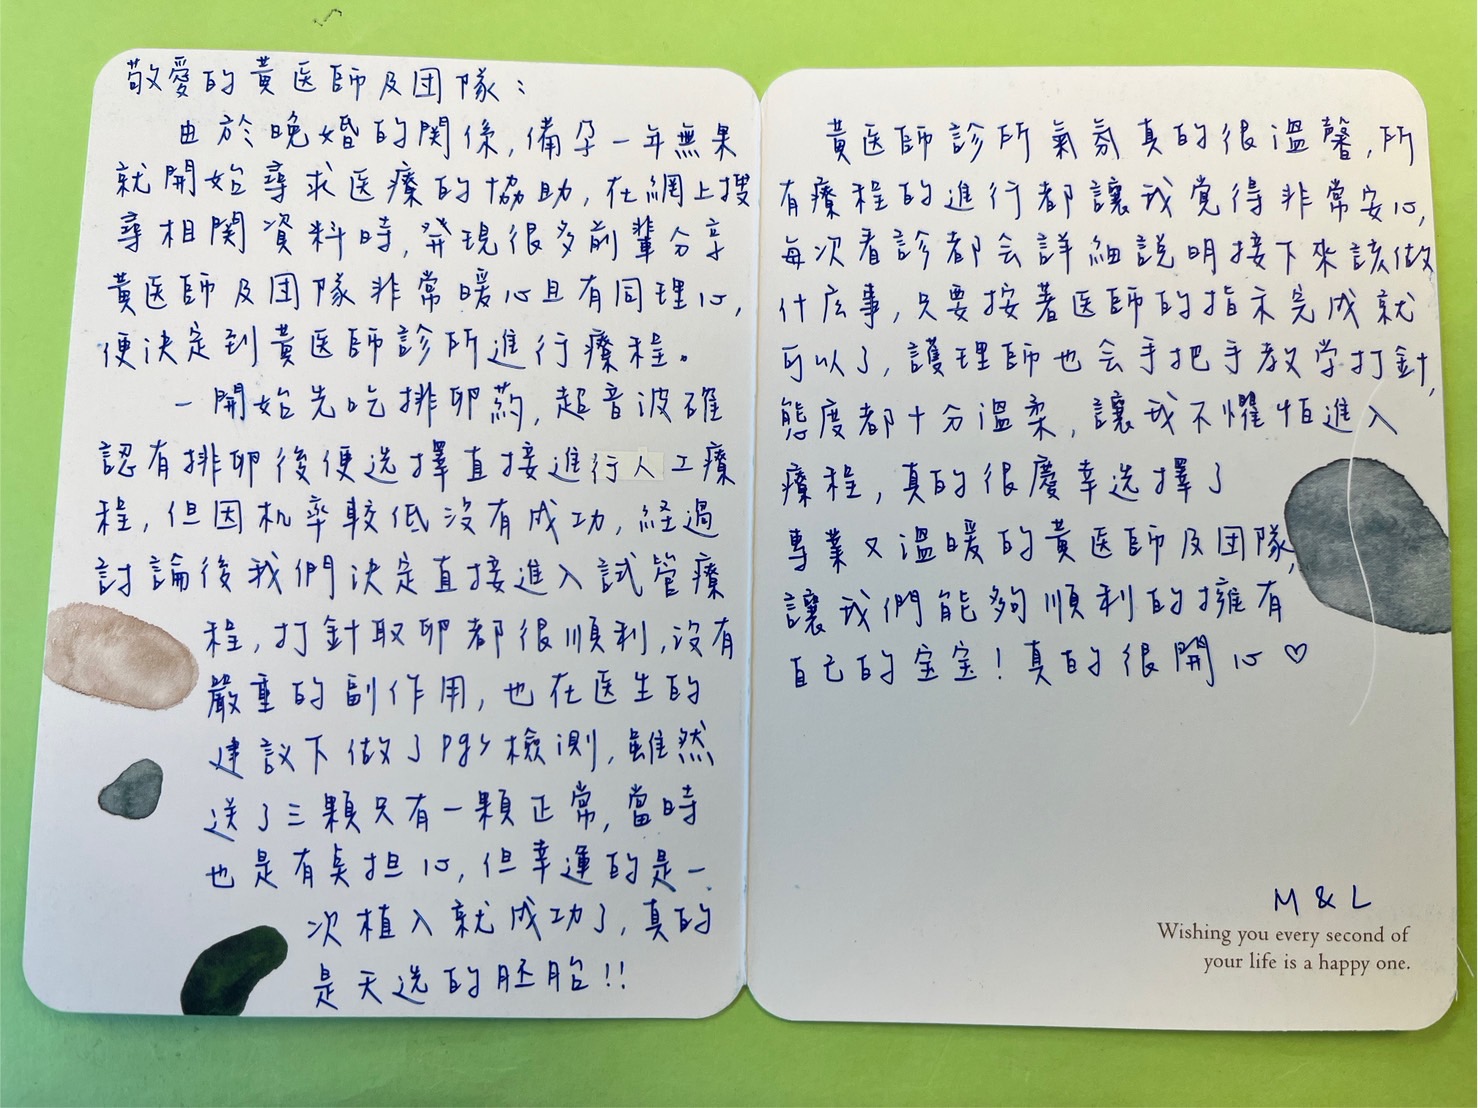 敬愛的黃医師及团隊：
由於晚婚的関係，備孕一年無果
就開始尋求医療的協助，在網上搜
尋相関資料時，発現很多前輩分享
黃医師及团隊非常暖心且有同理心，
便決定到黃医師診所進行療程。
一開始先吃排卵药，超音波確
認有排卵後便选擇直接進行人工療
程，但因机率較低沒有成功，経過
討論後我們決定直接進入試管療
程，打針取卵都很順利，沒有
嚴重的副作用，也在医生的
建议下做了pgs檢測，雖然
送了三顆只有一顆正常，當時
也是有点担心，但幸運的是一
次植入就成功了，真的
是天选的胚胎!!
黃医師診所氣氛真的很溫馨，所
有療程的進行都讓我覚得非常安心，
每次看診都会詳細說明接下來該做
什庅事，只要按著医師的指示完成就
可以了，護理師也会手把手教学打針，
態度都十分溫柔，讓我不懼怕進入
療程，真的很慶幸选擇了
專業又溫暖的黃医師及团隊，
讓我們能夠順利的擁有
自己的宝宝！真的很開心♡
M & L
Wishing you every second of
your life is a happy one.